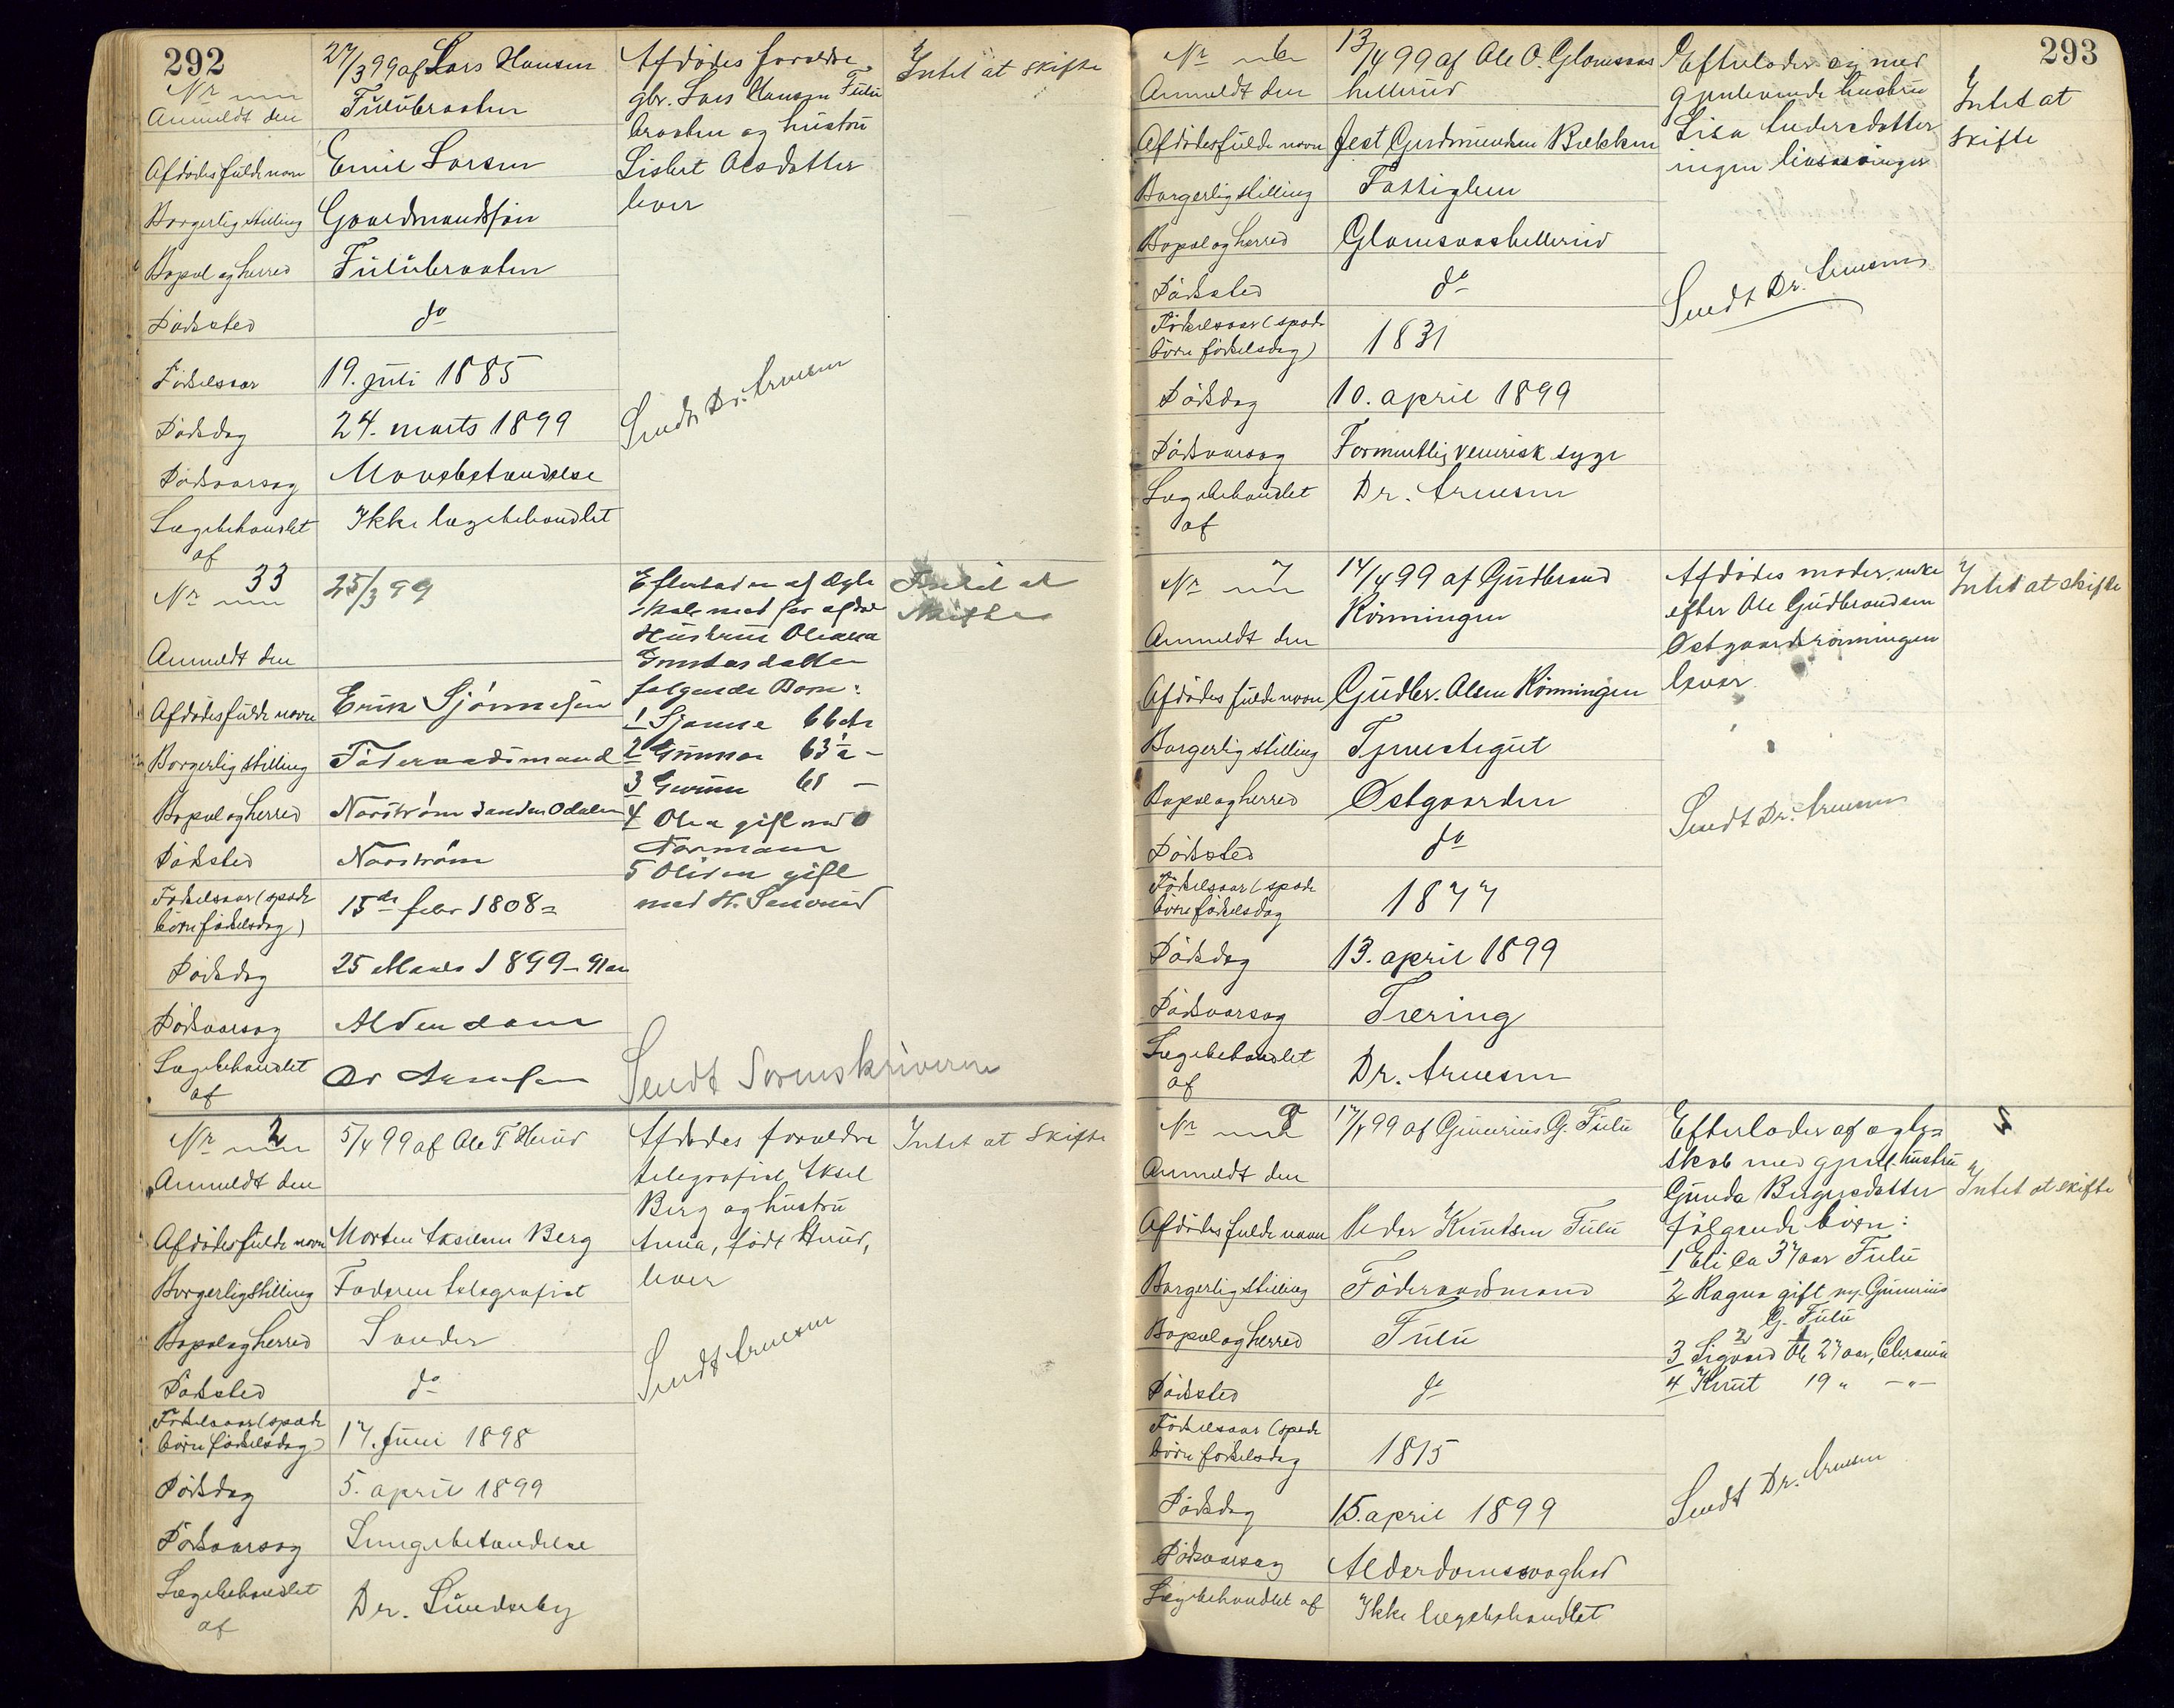 292
27/3 99 af Lars Hansen
Fulubraaten
Nr
Anmeldt den
Afdødes fulde navn Emil Larsen
Borgerlig stilling Gaardmandssøn
Bopæl og herred Fulubraaten
Dødssted do
Fødselsaar 19. juli 1885
Dødsdag 24. marts 1899
Dødsaarsag Mavebetændelse
Lægebehandlet af Ikke lægebehandlet
Afdødes forældre
gbr. Lars Hansen Fulu
braaten og hustru
Lisbet Olsdatter
lever
Sendt Dr. Arnesen
Intet at skifte
Nr 33 25/3 99
Anmeldt den
Afdødes fulde navn Erik
Borgerlig stilling Föderaadsmand
Bopæl og herred Norström Sander Odalen
Dødssted Norström
Fødselsaar (spæde
børn fødselsdag) 15de febr 1808
Dødsdag 25 Marts 1899 – 91 aar
Dødsaarsag Alderdom
Lægebehandlet af Dr Arnesen
Efterlader af Ægte
skab med før afdøe
Hustru Oleana
følgende Børn:
1 66 Aar
2 Gunnar 63 ½ –
3 61 –
4 Olea gift med O
Normann
5 gift
med H.
Sendt Sorenskriveren
Intet at
skifte
Nr 2 5/4 99 af Ole T Huud
Anmeldt den
Afdødes fulde navn Morten Akselsen Berg
Borgerlig stilling Faderen telegrafist
Bopæl og herred Sander
Dødssted do
Fødselsaar (spæde
børn fødselsdag) 17. juni 1898
Dødsdag 5. april 1899
Dødsaarsag Lungebetændelse
Lægebehandlet
af Dr. Sundsby
Afdødes forældre
telegrafist Aksel
Berg og hustru
Anna, født Huud,
lever
Sendt Arnesen
Intet at skifte
293
Nr 6 13/4 99 af Ole O. Glomsaas
Anmeldt den hellerud
Afdødes fulde navn Jest Gudmundsen Bækken
Borgerlig stilling Fattiglem
Bopæl og herred Glomsaashellerud
Dødssted do
Fødselsaar (spæde
børn fødselsdag) 1831
Dødsdag 10. april 1899
Dødsaarsag Formentlig venerisk syge
Lægebehandlet
af Dr. Arnesen
Efterlader sig med
gjenlevende hustru
Lisa Andersdatter
ingen livsarvinger
Sendt Dr. Arnesen
Intet at
skifte
Nr 7 14/4 99 af Gudbrand
Rönningen
Anmeldt den
Afdødes fulde navn Gudbr. Olsen Rönningen
Borgerlig stilling Tjenestegut
Bopæl og herred Østgaarden
Dødssted do
Fødselsaar (spæde
børn fødselsdag 1877
Dødsdag 13. april 1899
Dødsaarsag Tæring
Lægebehandlet
af Dr. Arnesen
Afdødes moder, enke
efter Ole Gudbrandsen
Østgaardsrönningen
lever
Sendt Dr. Arnesen
Intet at skifte
Nr 8 17/4 99 af Gunerius G. Fulu
Anmeldt den
Afdødes fulde navn Peder Knutsen Fulu
Borgerlig stilling Föderaadsmand
Bopæl og herred Fulu
Dødssted do
Fødselsaar (spæde
børn fødselsdag 1815
Dødsdag 15. april 1899
Dødsaarsag Alderdomssvaghed
Lægebehandlet af Ikke lægebehandlet
Efterlader af ægte
skab med gjenl. hustru
Gunda Birgersdatter
følgende børn:
1 Eli ca 37 aar Fulu
2 Ragna gift m. Gunerius
G. Fulu
3 Sigvard Ole 27 aar,
4 Knut 19 " – " –
Sendt Dr. Arnesen
Intet at skifte